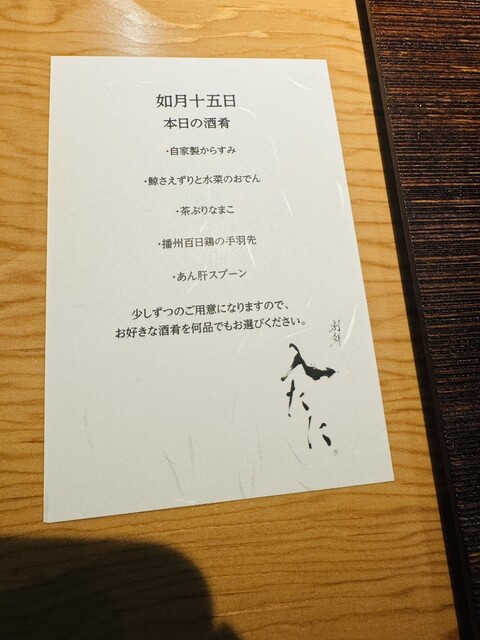 如月十五日
本日の酒肴
・自家製からすみ
・鯨さえずりと水菜のおでん
・茶ぶりなまこ
・播州百日鶏の手羽先
・あん肝スプーン
少しずつのご用意になりますので、
お好きな酒肴を何品でもお選びください。
割鮮
入たに